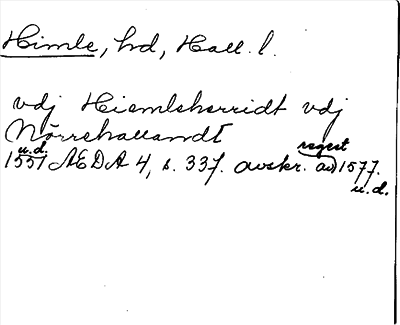 Himle, hd, Hall. l.
vdj Hiemlsherridt vdj
Nörrehallamdt
u.d. regest
1551 AEDA 4, s. 337. avskr. av 1577.
u.d.